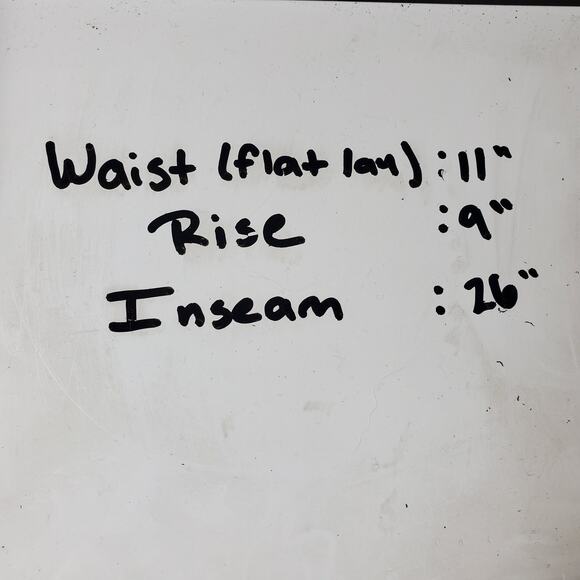 Waist (flat lay) : 11"
Rise : 9"
Inseam : 26"